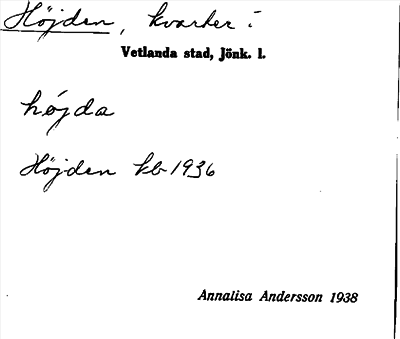 Höjden, kvarter i
Vetlanda stad, Jönk. l.
höjda
Höjden kb 1936
Annalisa Andersson 1938